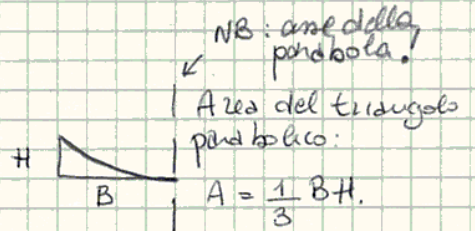 NB: asse della
parabola!
Area del triangolo
parabolico:
H
B
A = 1/3 BH.